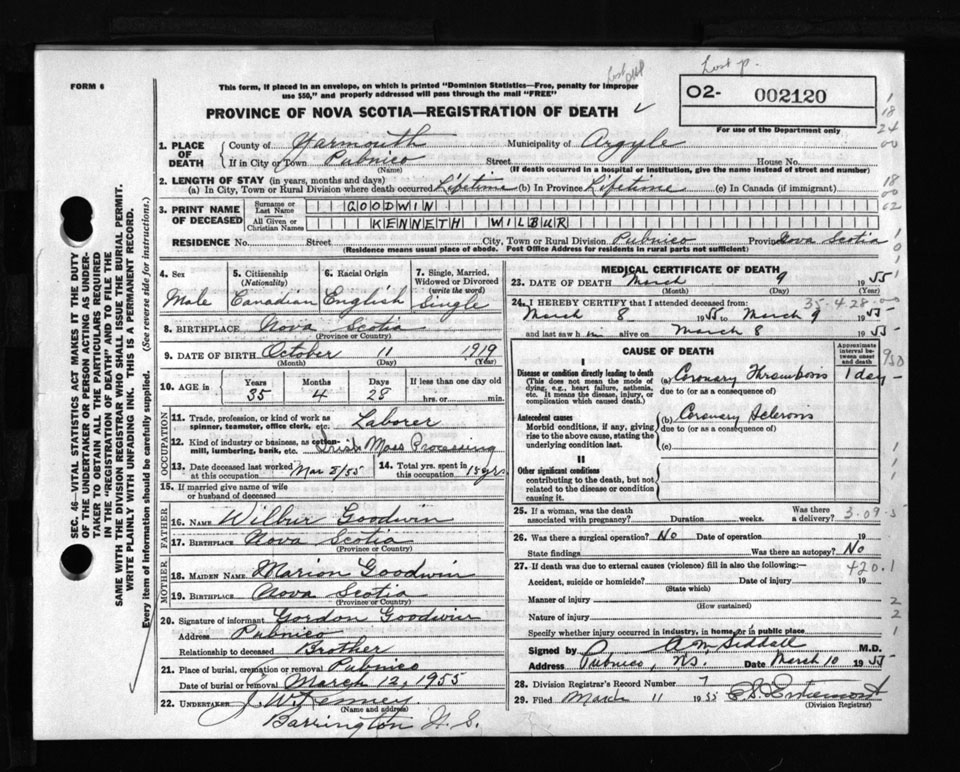 Lost p.
FORM 6
This form, if placed in an envelope, on which is printed "Dominion Statistics—Free, penalty for improper
use $50," and properly addressed will pass through the mail "FREE"
O2- 002120
PROVINCE OF NOVA SCOTIA—REGISTRATION OF DEATH
For use of the Department only
1. PLACE OF DEATH County of Yarmouth Municipality of Argyle
If in City or Town Pubnico Street House No.
(Name) (If death occurred in a hospital or institution, give the name instead of street and number)
2. LENGTH OF STAY (in years, months and days)
(a) In City, Town or Rural Division where death occurred Lifetime (b) In Province Lifetime (c) In Canada (if immigrant)
3. PRINT NAME OF DECEASED Surname or Last Name GOODWIN
All Given or Christian Names KENNETH WILBUR
RESIDENCE No. Street City, Town or Rural Division Pubnico Province Nova Scotia
(Residence means usual place of abode. Post Office Address for residents in rural parts not sufficient)
4. Sex 5. Citizenship (Nationality) 6. Racial Origin 7. Single, Married, Widowed or Divorced (write the word)
Male Canadian English Single
8. BIRTHPLACE Nova Scotia
(Province or Country)
9. DATE OF BIRTH October 11 1919
(Month) (Day) (Year)
10. AGE in Years Months Days If less than one day old
35 4 28 hrs. or min.
OCCUPATION
11. Trade, profession, or kind of work as spinner, teamster, office clerk, etc. Laborer
12. Kind of industry or business, as cotton-mill, lumbering, bank, etc. Irish Moss Processing
13. Date deceased last worked at this occupation Mar 8/55 14. Total yrs. spent in this occupation 15 yrs
15. If married give name of wife or husband of deceased
FATHER
16. NAME Wilbur Goodwin
17. BIRTHPLACE Nova Scotia
(Province or Country)
MOTHER
18. MAIDEN NAME Marion Goodwin
19. BIRTHPLACE Nova Scotia
(Province or Country)
20. Signature of informant Gordon Goodwin
Address Pubnico
Relationship to deceased Brother
21. Place of burial, cremation or removal Pubnico
Date of burial or removal March 12, 1955
22. UNDERTAKER J. W. Kenney
(Name and address)
Barrington N. S.
MEDICAL CERTIFICATE OF DEATH
23. DATE OF DEATH March 9 1955
(Month) (Day) (Year)
35-4-28-00
24. I HEREBY CERTIFY that I attended deceased from:
March 8 1955 to March 9 1955
and last saw him alive on March 8 1955
CAUSE OF DEATH
Approximate interval between onset and death
I
Disease or condition directly leading to death (a) Coronary Thrombosis 1 day
(This does not mean the mode of dying, e.g., heart failure, asthenia, etc. It means the disease, injury, or complication which caused death.) due to (or as a consequence of)
Antecedent causes (b) Coronary Sclerosis
Morbid conditions, if any, giving rise to the above cause, stating the underlying condition last. due to (or as a consequence of)
(c)
II
Other significant conditions
contributing to the death, but not related to the disease or condition causing it.
25. If a woman, was the death associated with pregnancy? Duration weeks. Was there a delivery?
3-09-5
26. Was there a surgical operation? No Date of operation 19
State findings Was there an autopsy? No
27. If death was due to external causes (violence) fill in also the following:— 420.1
Accident, suicide or homicide? Date of injury 19
(State which)
Manner of injury
(How sustained)
Nature of injury
Specify whether injury occurred in industry, in home, or in public place
Signed by A M Siddall M.D.
Address Pubnico, N.S. Date March 10 1955
28. Division Registrar's Record Number 7
29. Filed March 11 1955
(Division Registrar)
SEC. 46—VITAL STATISTICS ACT MAKES IT THE DUTY
OF THE UNDERTAKER OR PERSON ACTING AS UNDER-
TAKER TO OBTAIN ALL THE PARTICULARS REQUIRED
IN THE "REGISTRATION OF DEATH" AND TO FILE THE
SAME WITH THE DIVISION REGISTRAR WHO SHALL ISSUE THE BURIAL PERMIT.
WRITE PLAINLY WITH UNFADING INK. THIS IS A PERMANENT RECORD.
Every item of information should be carefully supplied. (See reverse side for instructions.)